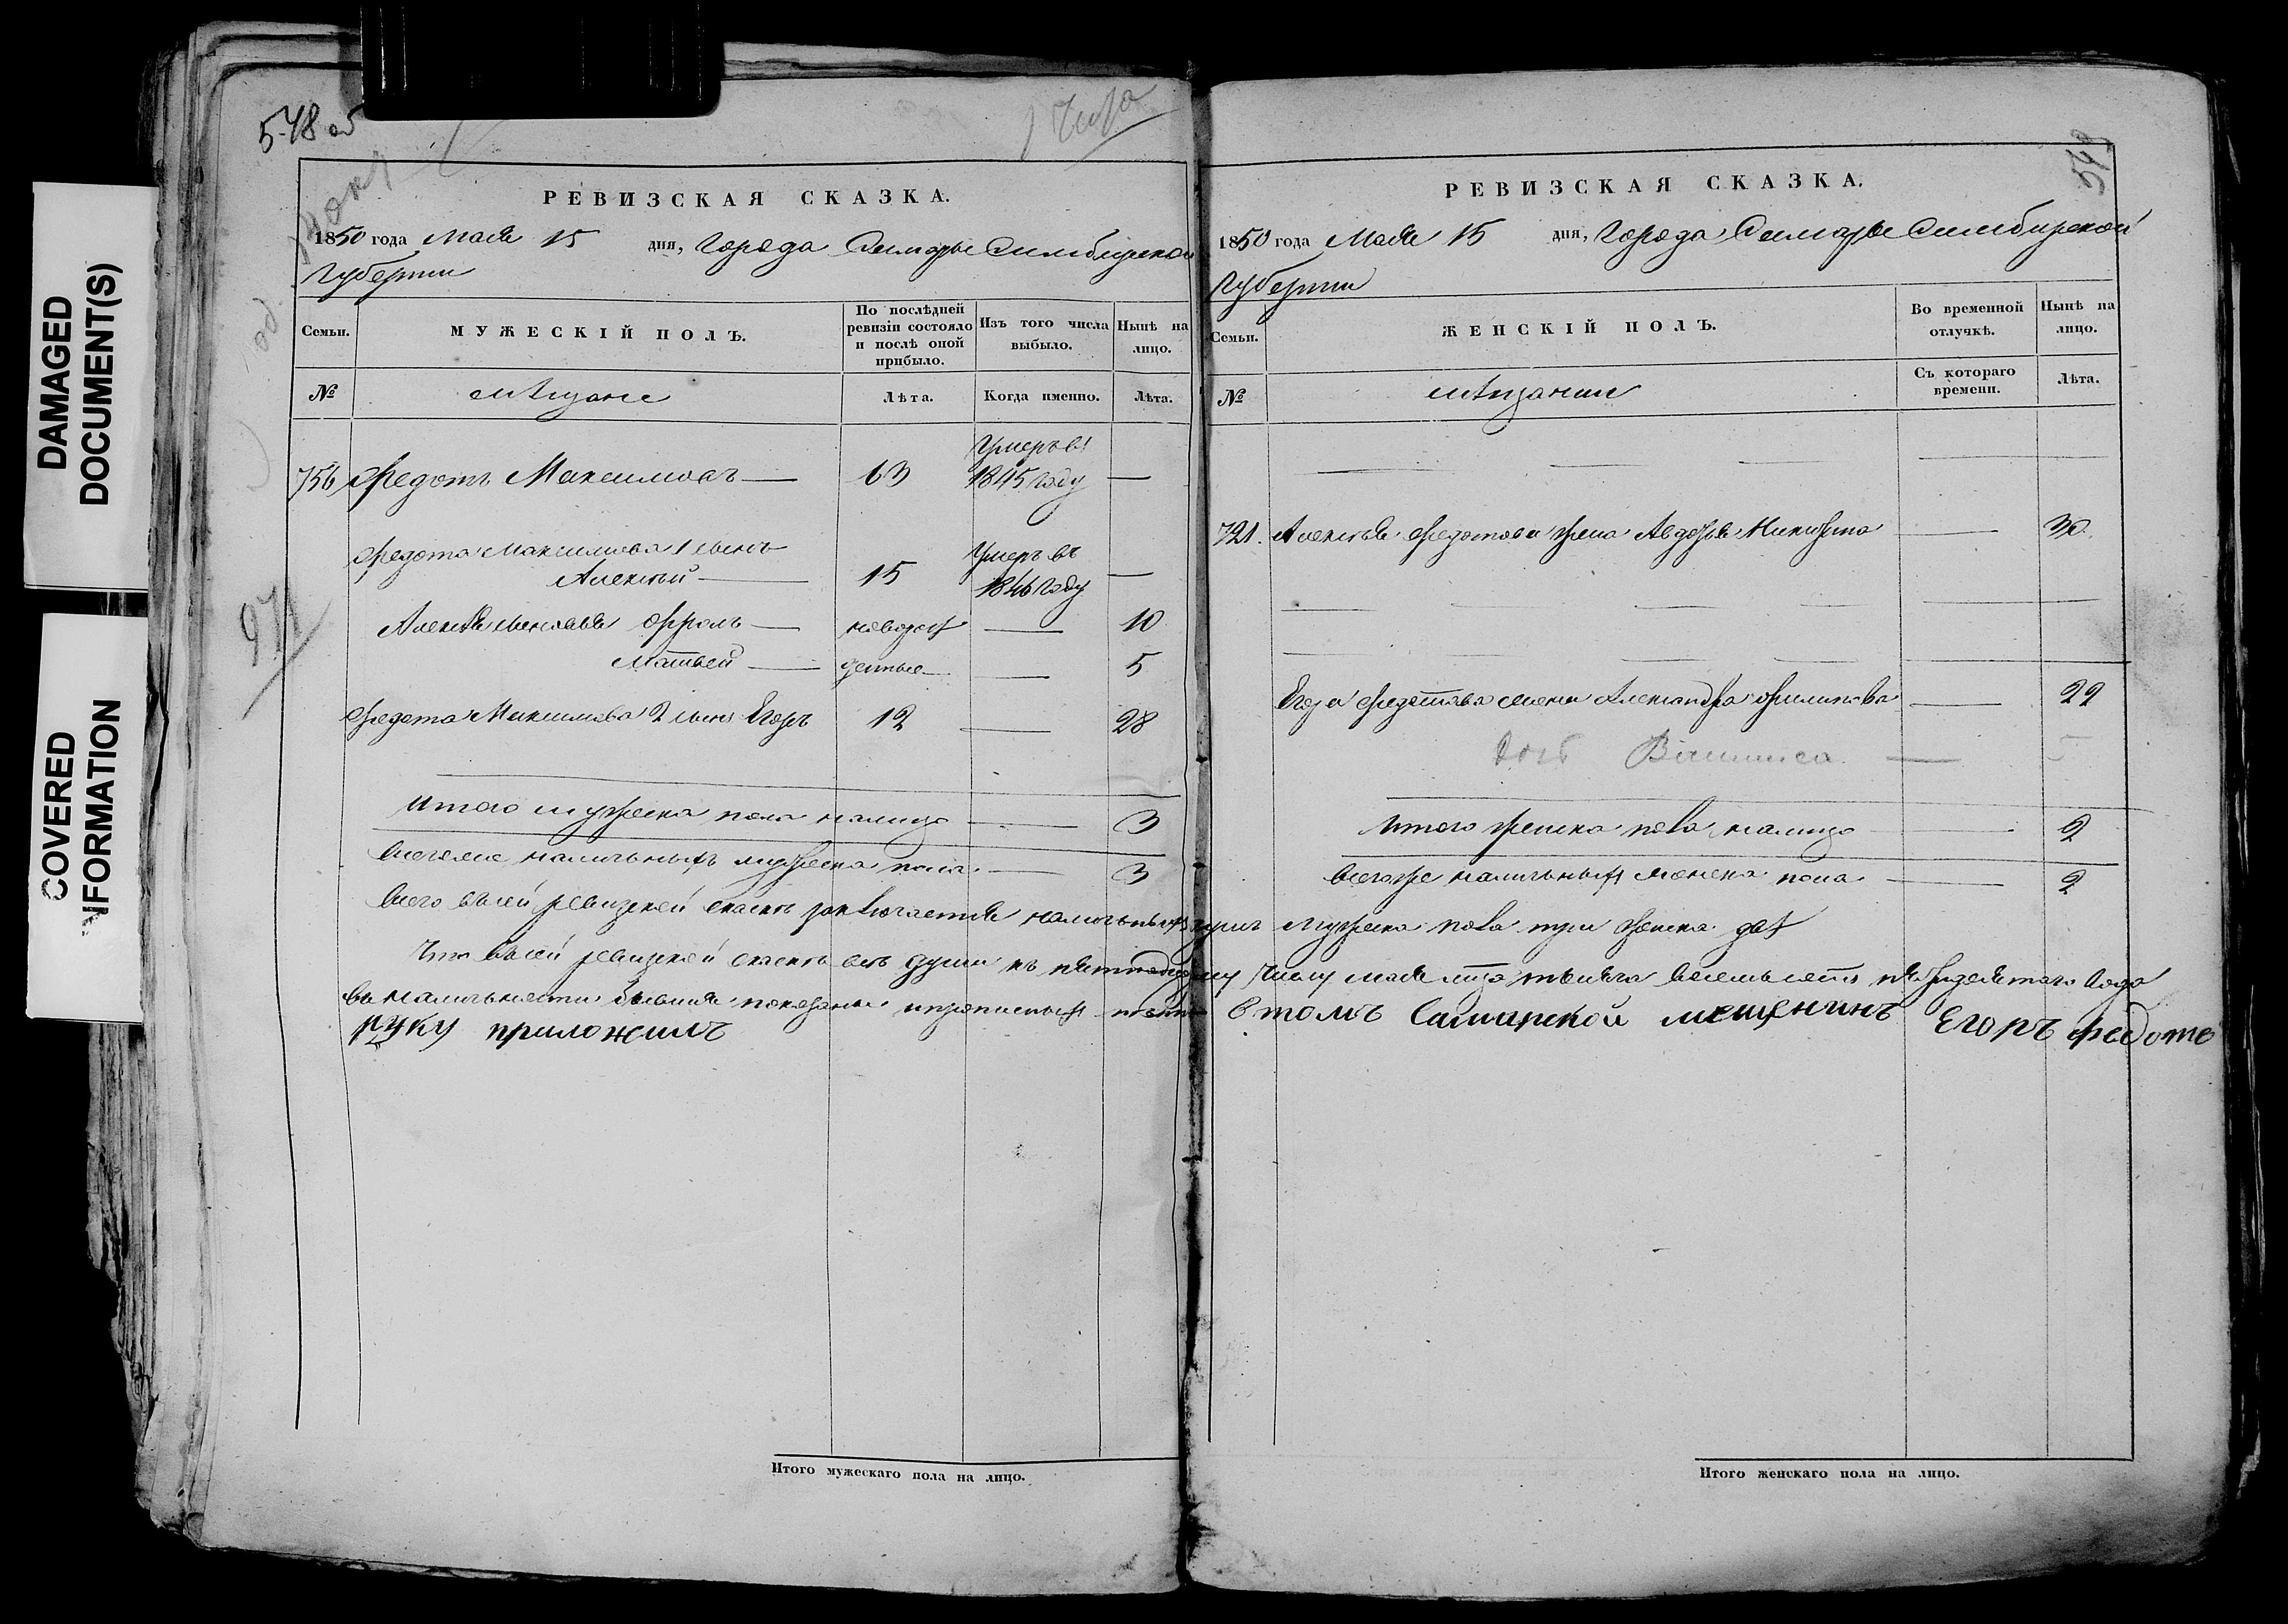 DAMAGED
DOCUMENT(S)
COVERED
INFORMATION
548 об
РЕВИЗСКАЯ СКАЗКА.
1850 года Мая 15 дня, Города Самары Симбирской
Губернии
Семьи.
МУЖЕСКІЙ ПОЛЪ.
По послѣдней ревизіи состояло и послѣ оной прибыло.
Изъ того числа выбыло.
Нынѣ на лицо.
№
мѣщане
Лѣта.
Когда именно.
Лѣта.
756 Федотъ Максимовъ — 63 Умеръ въ 1845 году —
Федота Максимова 1 сынъ
Алексѣй — 15 Умеръ въ 1846 году —
Алексѣя сыновья Фролъ — новорож 10
Матвей — денные — 5
Федота Максимова 2 сынъ Егоръ 12 — 28
Итого мужеска пола налицо — 3
Всего же наличныхъ мужеска пола — 3
Итого мужескаго пола на лицо.
549
РЕВИЗСКАЯ СКАЗКА.
1850 года Мая 15 дня, Города Самары Симбирской
Губернии
Семьи.
ЖЕНСКІЙ ПОЛЪ.
Во временной отлучкѣ.
Нынѣ на лицо.
№
мѣщанки
Съ котораго времени.
Лѣта.
721. Алексѣя Федотова жена Авдотья Никитина — 30
Егора Федотова жена Александра Филипова — 22
дочь Васиliса —
Итого женска пола налицо — 2
Всего же наличных женска пола — 2
Всего в сей ревизской сказкѣ заключается наличных душъ мужеска пола три женска две
Что в сей ревизской сказкѣ всѣ души къ пятнадцатому числу мая тысяча восемьсотъ пятидесятаго года
в наличности бывшия показаны и прописных нѣтъ в томъ Самарской мещенинъ Егоръ Федотъ
руку приложилъ
Итого женскаго пола на лицо.